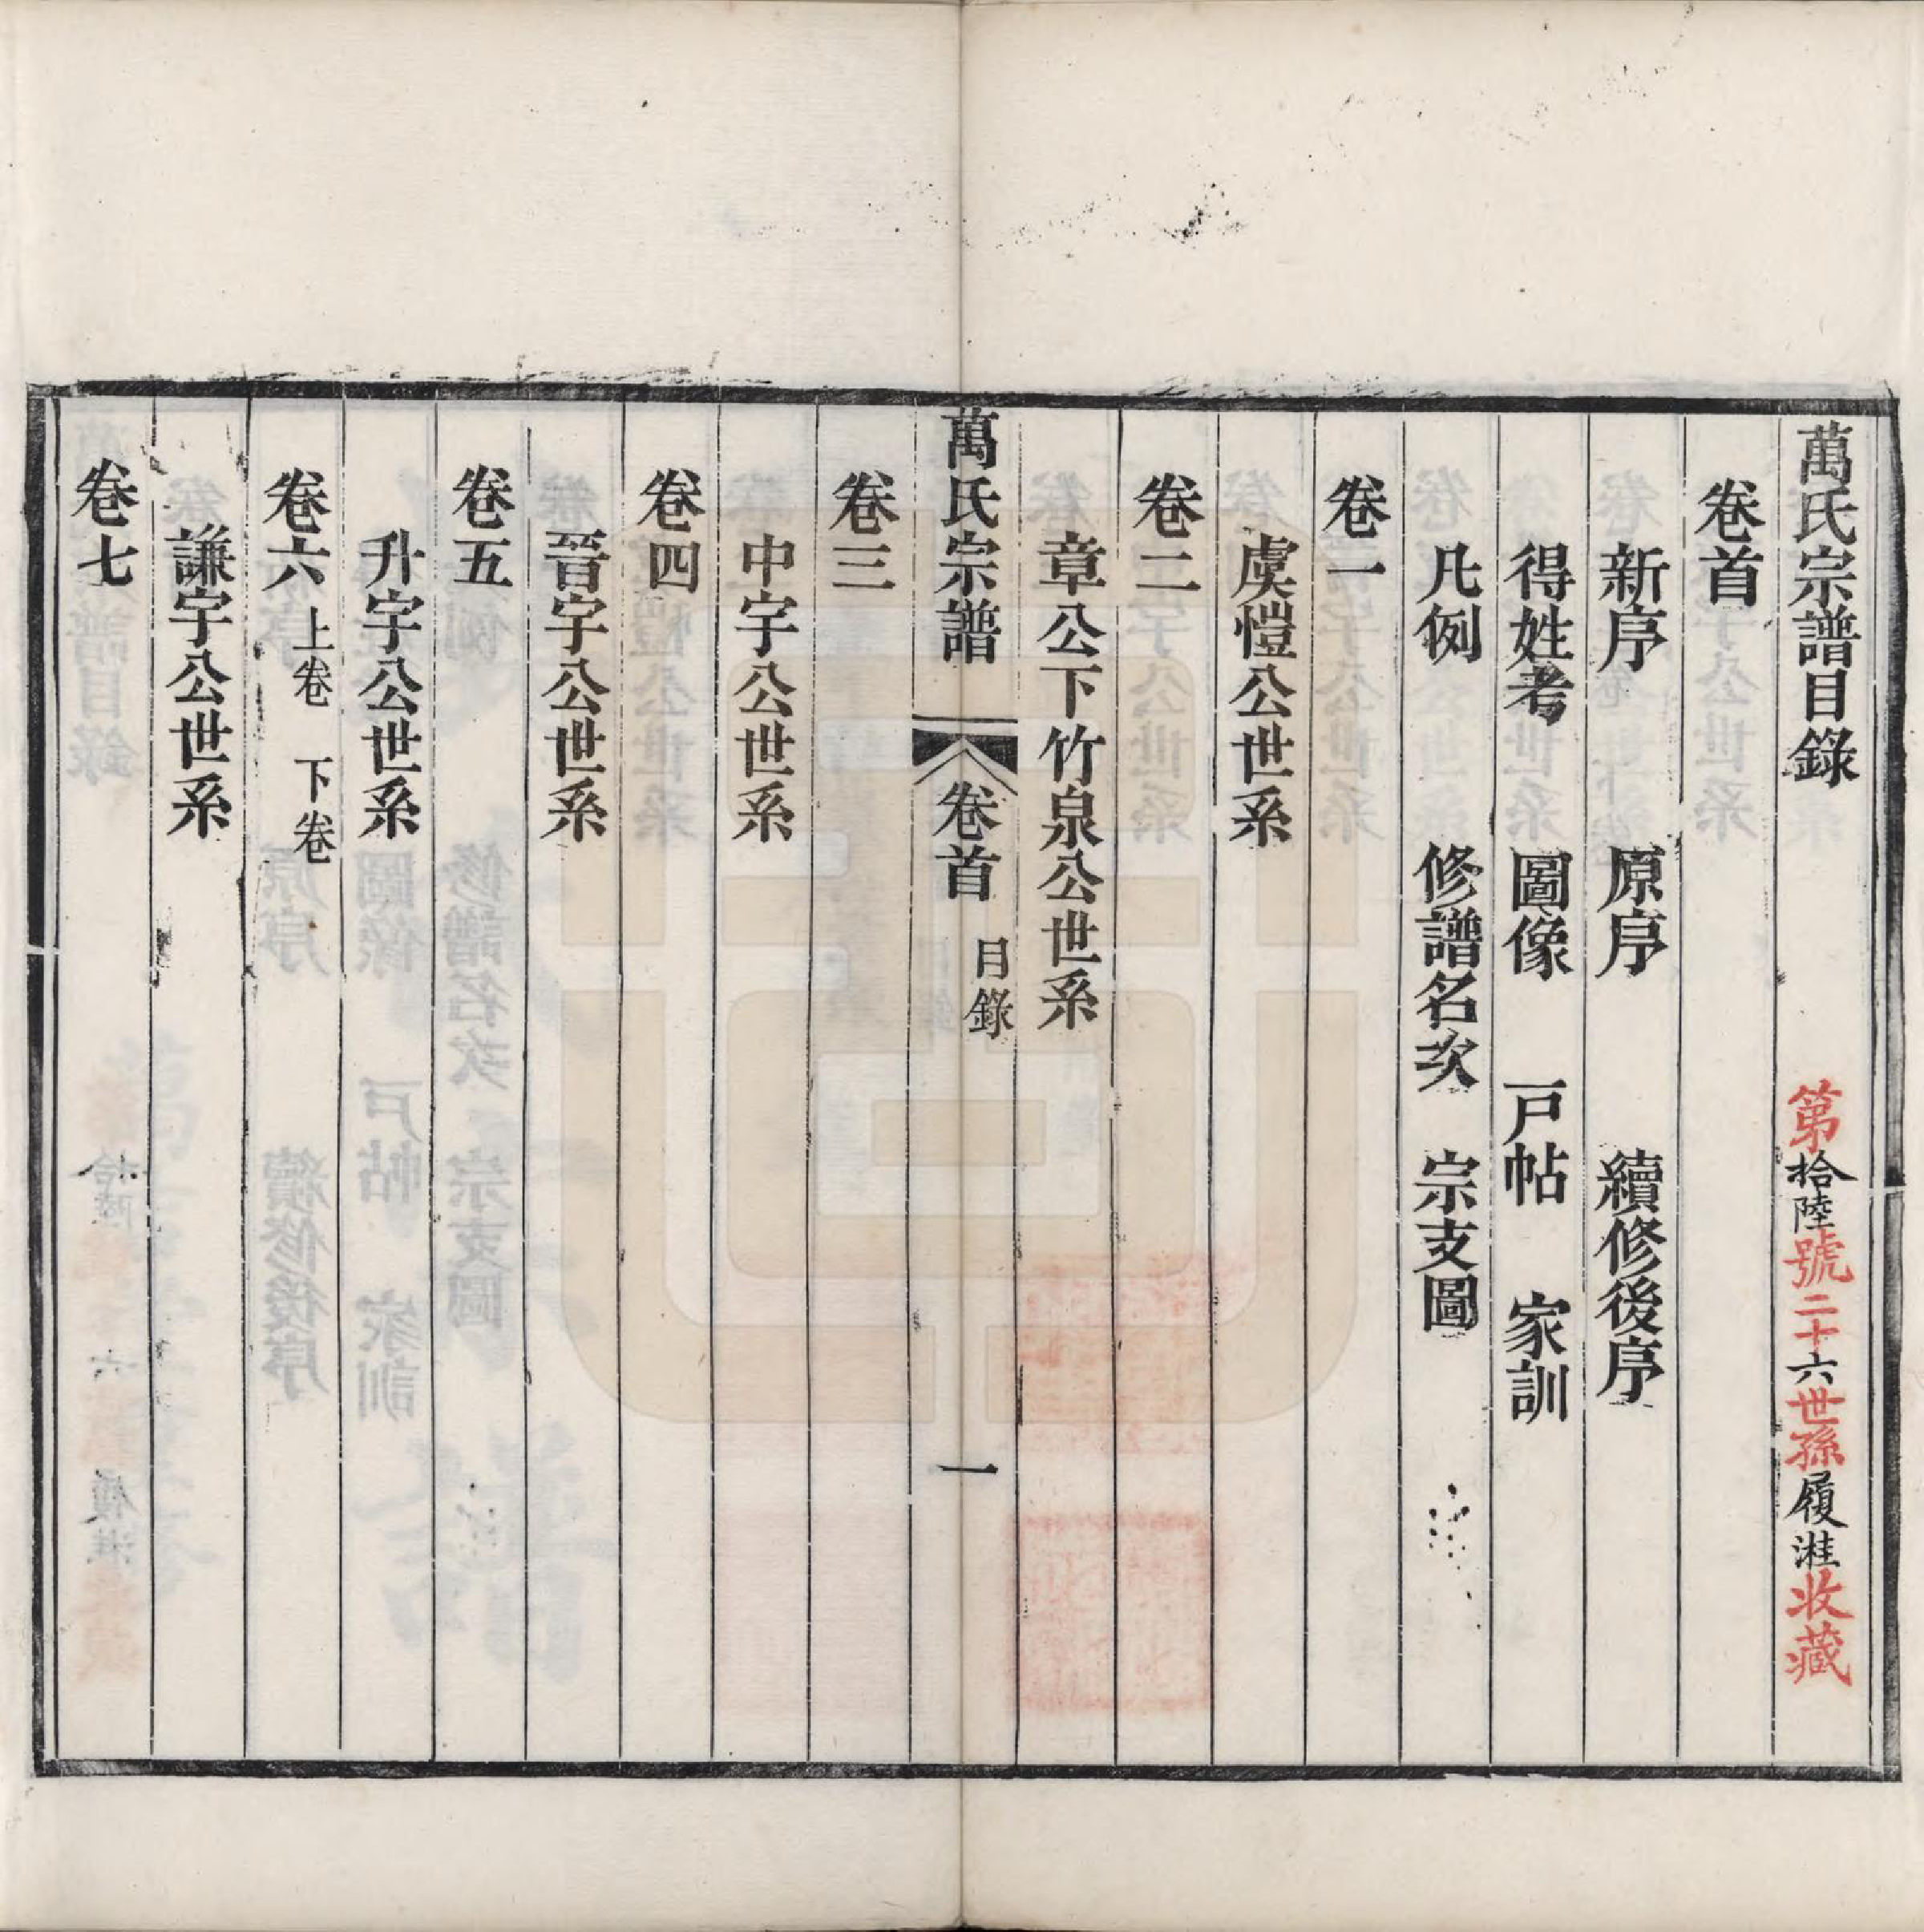 萬氏宗譜目錄 第拾陸號二十六世孫履漄收藏
卷首
新序 原序 續修後序
得姓考 圖像 戸帖 家訓
凡例 修譜名次 宗支圖
卷一
虞愷公世系
卷二
章公下竹泉公世系
萬氏宗譜 卷首 目錄 一
卷三
中宇公世系
卷四
晉宇公世系
卷五
升宇公世系
卷六 上卷 下卷
謙宇公世系
卷七